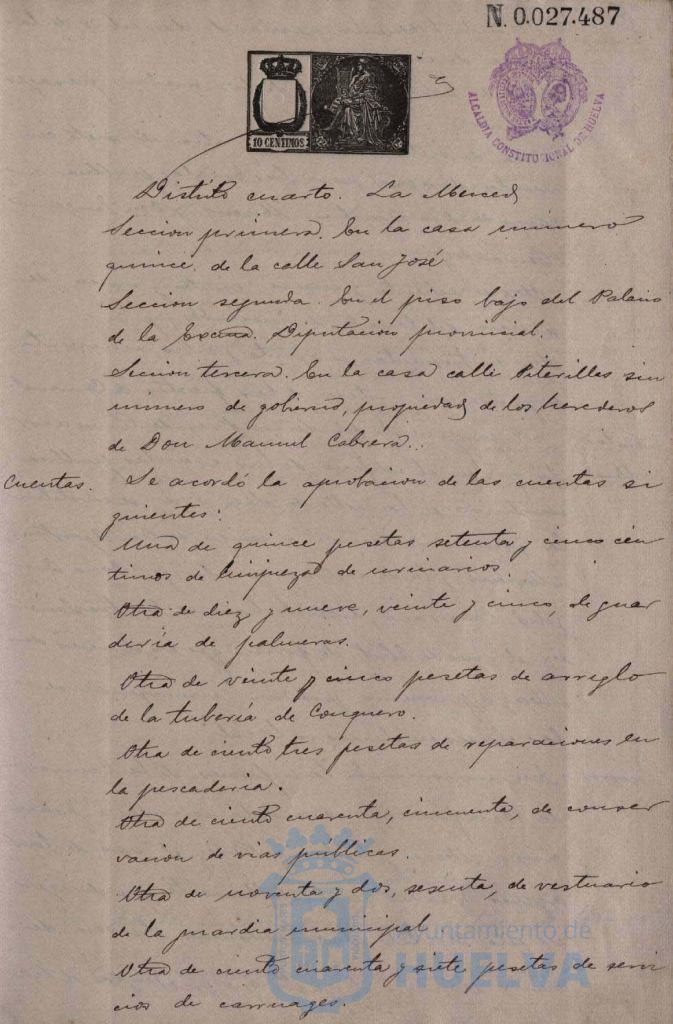 N. 0.027.487
10 CENTIMOS
ALCALDIA CONSTITUCIONAL DE HUELVA
Distrito cuarto. La Merced
Seccion primera. En la casa número
quince de la calle San José
Seccion segunda. En el piso bajo del Palacio
de la Excma. Diputacion provincial.
Seccion tercera. En la casa calle Piterilles sin
número de gobierno, propiedad de los herederos
de Don Manuel Cabrera.
Cuentas. Se acordó la aprobacion de las cuentas si
guientes:
Una de quince pesetas setenta y cinco cén
timos de limpieza de urinarios.
Otra de diez y nueve, veinte y cinco, de guar
dería de palmeras.
Otra de veinte y cinco pesetas de arreglo
de la tubería de Conquero.
Otra de ciento tres pesetas de reparaciones en
la pescaderia.
Otra de ciento cuarenta, cincuenta, de conser
vacion de vias públicas.
Otra de noventa y dos, sesenta, de vestuario
de la guardia municipal
Otra de ciento cuarenta y siete pesetas de servi
cios de carruages.
Ayuntamiento de
HUELVA